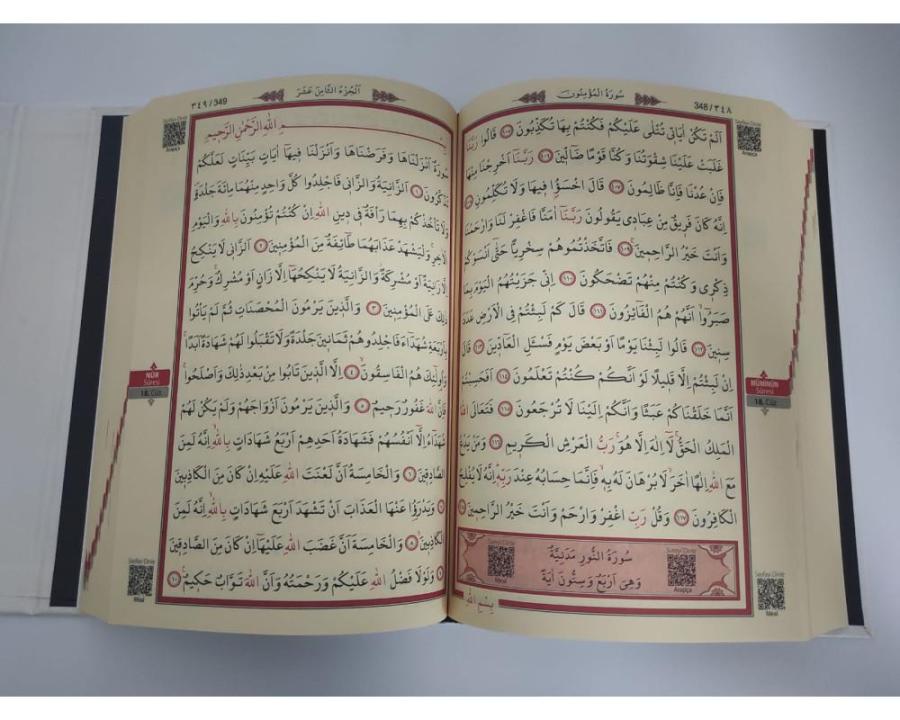 سُورَةُ الْمُؤْمِنُونَ
348/٣٤٨
Sayfayı Dinle
Arapça
اَلَمْ تَكُنْ اٰيَاتٖي تُتْلٰى عَلَيْكُمْ فَكُنْتُمْ بِهَا تُكَذِّبُونَ ﴿١٠٥﴾ قَالُوا رَبَّنَا
غَلَبَتْ عَلَيْنَا شِقْوَتُنَا وَكُنَّا قَوْمًا ضَٓالّٖينَ ﴿١٠٦﴾ رَبَّنَٓا اَخْرِجْنَا مِنْهَا
فَاِنْ عُدْنَا فَاِنَّا ظَالِمُونَ ﴿١٠٧﴾ قَالَ اخْسَؤُ۫ا فٖيهَا وَلَا تُكَلِّمُونِ ﴿١٠٨﴾
اِنَّهُ كَانَ فَرٖيقٌ مِنْ عِبَادٖي يَقُولُونَ رَبَّنَٓا اٰمَنَّا فَاغْفِرْ لَنَا وَارْحَمْنَا
وَاَنْتَ خَيْرُ الرَّاحِمٖينَ ﴿١٠٩﴾ فَاتَّخَذْتُمُوهُمْ سِخْرِيًّا حَتّٰٓى اَنْسَوْكُمْ
ذِكْرٖي وَكُنْتُمْ مِنْهُمْ تَضْحَكُونَ ﴿١١٠﴾ اِنّٖي جَزَيْتُهُمُ الْيَوْمَ بِمَا
صَبَرُٓوا اَنَّهُمْ هُمُ الْفَٓائِزُونَ ﴿١١١﴾ قَالَ كَمْ لَبِثْتُمْ فِي الْاَرْضِ عَدَدَ
سِنٖينَ ﴿١١٢﴾ قَالُوا لَبِثْنَا يَوْمًا اَوْ بَعْضَ يَوْمٍ فَسْـَٔلِ الْعَٓادّٖينَ ﴿١١٣﴾ قَالَ
اِنْ لَبِثْتُمْ اِلَّا قَلٖيلًا لَوْ اَنَّكُمْ كُنْتُمْ تَعْلَمُونَ ﴿١١٤﴾ اَفَحَسِبْتُمْ
اَنَّمَا خَلَقْنَاكُمْ عَبَثًا وَاَنَّكُمْ اِلَيْنَا لَا تُرْجَعُونَ ﴿١١٥﴾ فَتَعَالَى اللّٰهُ
الْمَلِكُ الْحَقُّ لَٓا اِلٰهَ اِلَّا هُوَ رَبُّ الْعَرْشِ الْكَرٖيمِ ﴿١١٦﴾ وَمَنْ يَدْعُ
مَعَ اللّٰهِ اِلٰهًا اٰخَرَ لَا بُرْهَانَ لَهُ بِهٖ فَاِنَّمَا حِسَابُهُ عِنْدَ رَبِّهٖ اِنَّهُ لَا يُفْلِحُ
الْكَافِرُونَ ﴿١١٧﴾ وَقُلْ رَبِّ اغْفِرْ وَارْحَمْ وَاَنْتَ خَيْرُ الرَّاحِمٖينَ ﴿١١٨﴾
Sureyi Dinle
Arapça
سُورَةُ النُّورِ مَدَنِيَّةٌ
وَهِيَ اَرْبَعٌ وَسِتُّونَ اٰيَةً
Sureyi Dinle
Meal
بِسْمِ اللّٰهِ
MÜMİNÛN
Sûresi
18. Cüz
Sayfayı Dinle
Meal
اَلْجُزْءُ الثَّامِنَ عَشَرَ
٣٤٩/349
Sayfayı Dinle
Arapça
بِسْــمِ اللّٰهِ الرَّحْمٰنِ الرَّحٖيمِ
سُورَةٌ اَنْزَلْنَاهَا وَفَرَضْنَاهَا وَاَنْزَلْنَا فٖيهَٓا اٰيَاتٍ بَيِّنَاتٍ لَعَلَّكُمْ
تَذَكَّرُونَ ﴿١﴾ اَلزَّانِيَةُ وَالزَّانٖي فَاجْلِدُوا كُلَّ وَاحِدٍ مِنْهُمَا مِائَةَ جَلْدَةٍ
وَلَا تَأْخُذْكُمْ بِهِمَا رَأْفَةٌ فٖي دٖينِ اللّٰهِ اِنْ كُنْتُمْ تُؤْمِنُونَ بِاللّٰهِ وَالْيَوْمِ
الْاٰخِرِ وَلْيَشْهَدْ عَذَابَهُمَا طَٓائِفَةٌ مِنَ الْمُؤْمِنٖينَ ﴿٢﴾ اَلزَّانٖي لَا يَنْكِحُ
اِلَّا زَانِيَةً اَوْ مُشْرِكَةً وَالزَّانِيَةُ لَا يَنْكِحُهَٓا اِلَّا زَانٍ اَوْ مُشْرِكٌ وَحُرِّمَ
ذٰلِكَ عَلَى الْمُؤْمِنٖينَ ﴿٣﴾ وَالَّذٖينَ يَرْمُونَ الْمُحْصَنَاتِ ثُمَّ لَمْ يَأْتُوا
بِاَرْبَعَةِ شُهَدَٓاءَ فَاجْلِدُوهُمْ ثَمَانٖينَ جَلْدَةً وَلَا تَقْبَلُوا لَهُمْ شَهَادَةً اَبَدًا
وَاُو۬لٰٓئِكَ هُمُ الْفَاسِقُونَ ﴿٤﴾ اِلَّا الَّذٖينَ تَابُوا مِنْ بَعْدِ ذٰلِكَ وَاَصْلَحُوا
فَاِنَّ اللّٰهَ غَفُورٌ رَحٖيمٌ ﴿٥﴾ وَالَّذٖينَ يَرْمُونَ اَزْوَاجَهُمْ وَلَمْ يَكُنْ لَهُمْ
شُهَدَٓاءُ اِلَّٓا اَنْفُسُهُمْ فَشَهَادَةُ اَحَدِهِمْ اَرْبَعُ شَهَادَاتٍ بِاللّٰهِ اِنَّهُ لَمِنَ
الصَّادِقٖينَ ﴿٦﴾ وَالْخَامِسَةُ اَنَّ لَعْنَتَ اللّٰهِ عَلَيْهِ اِنْ كَانَ مِنَ الْكَاذِبٖينَ
﴿٧﴾ وَيَدْرَؤُ۬ا عَنْهَا الْعَذَابَ اَنْ تَشْهَدَ اَرْبَعَ شَهَادَاتٍ بِاللّٰهِ اِنَّهُ لَمِنَ
الْكَاذِبٖينَ ﴿٨﴾ وَالْخَامِسَةَ اَنَّ غَضَبَ اللّٰهِ عَلَيْهَٓا اِنْ كَانَ مِنَ الصَّادِقٖينَ
﴿٩﴾ وَلَوْلَا فَضْلُ اللّٰهِ عَلَيْكُمْ وَرَحْمَتُهُ وَاَنَّ اللّٰهَ تَوَّابٌ حَكٖيمٌ ﴿١٠﴾
NÛR
Sûresi
18. Cüz
Sayfayı Dinle
Meal